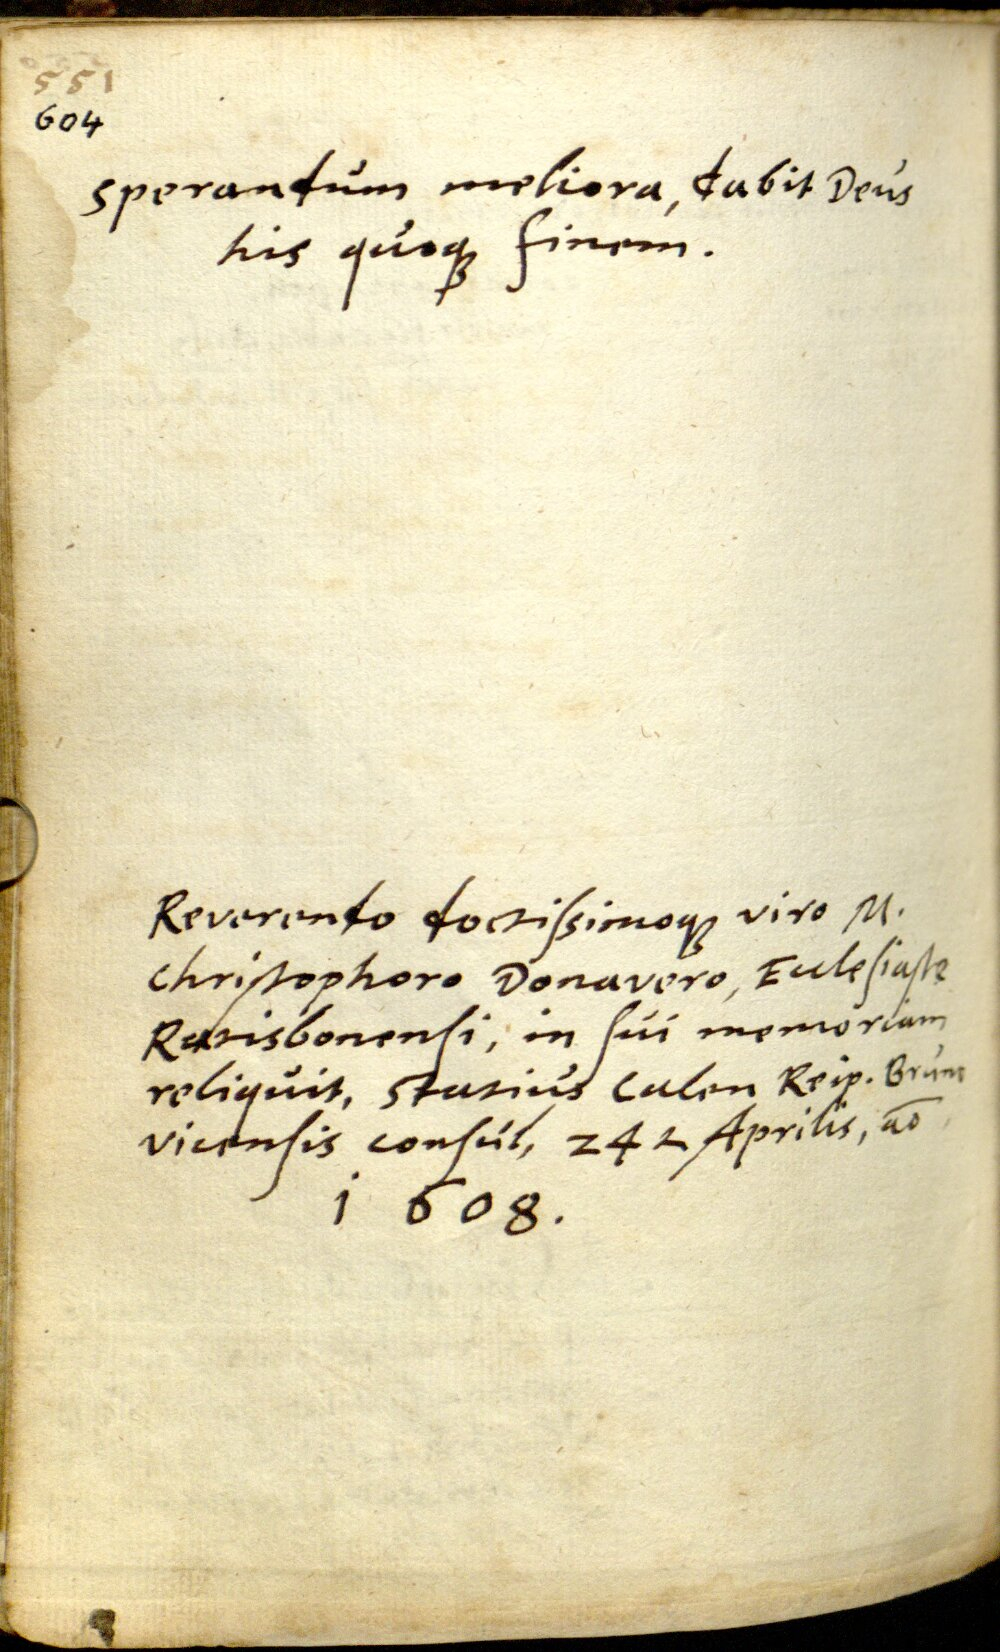 551
604
Sperandum meliora, dabit Deus
his quoqꝫ finem.
Reverendo doctiſsimoqꝫ viro M.
Chriſtophoro Donavero, Eccleſiaſte
Ratisbonenſi, in ſui memoriam
reliquit, Statius Calen Reip. Brunſ
vicenſis conſul, 24 Aprilis, aō
1608.